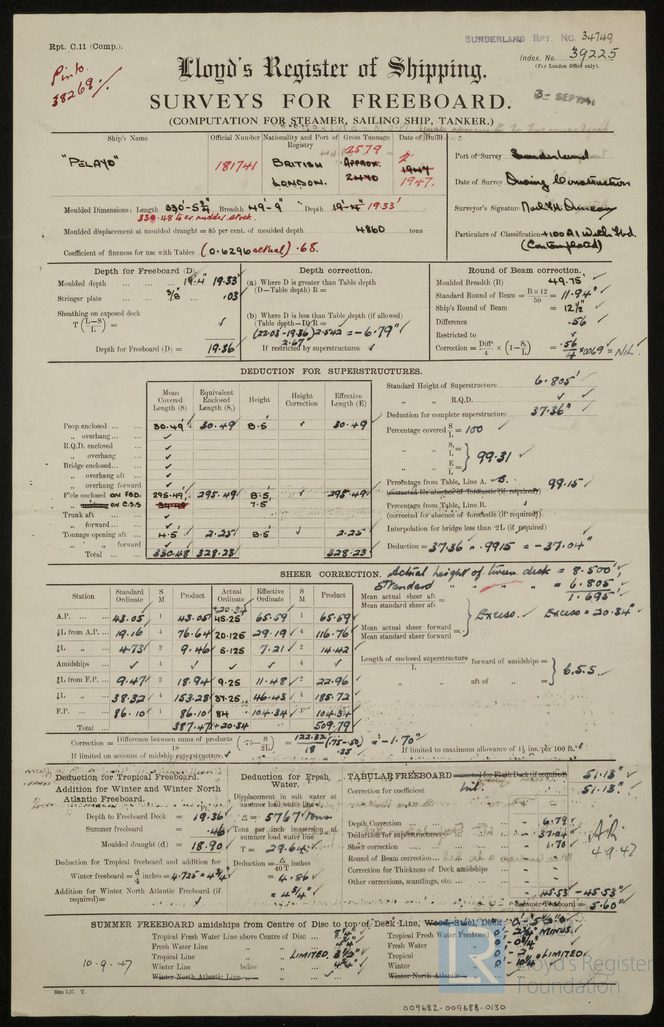 Rpt. C.11 (Comp.).
SUNDERLAND RPT. No. 34749
Index. No. 39225
(For London Office only).
Pinto.
38268
Lloyd's Register of Shipping.
SURVEYS FOR FREEBOARD.
(COMPUTATION FOR STEAMER, SAILING SHIP, TANKER.)
Ship's Name
Official Number
Nationality and Port of Registry
Gross Tonnage
Date of Build
"PELAYO"
181741
BRITISH
LONDON.
2579
APPROX.
2470
1947
1947.
Port of Survey Sunderland
Date of Survey During Construction
Surveyor's Signature
Particulars of Classification +100A1 With Fbd.
(Contemplated)
Moulded Dimensions: Length 330'-5¾" Breadth 49'-9" Depth 19'-4" 19.33'
330.48 to cr. rudder stock.
Moulded displacement at moulded draught = 85 per cent. of moulded depth 4860 tons
Coefficient of fineness for use with Tables (0.6296 actual) .68.
Depth for Freeboard (D)
Moulded depth ... ... ... 19'-4" 19.33
Stringer plate ... ... 3/8" .03
Sheathing on exposed deck
T(L-S/L) = ✓
Depth for Freeboard (D) = 19.36
Depth correction.
(a) Where D is greater than Table depth
(D—Table depth) R =
(b) Where D is less than Table depth (if allowed)
(Table depth—D) R =
(22.03-19.36) 2.542 = -6.79"
2.67
If restricted by superstructures ✓
Round of Beam correction.
Moulded Breadth (B) 49.75'
Standard Round of Beam = B×12/50 = 11.94"
Ship's Round of Beam = 12½"
Difference .56
Restricted to
Correction = Diff/4 × (1-S₁/L) = .56/4 × .0069 = Nil.
DEDUCTION FOR SUPERSTRUCTURES.
Mean Covered Length (S)
Equivalent Enclosed Length (S₁)
Height
Height Correction
Effective Length (E)
Poop enclosed ... ... 30.49 30.49 8.5 ✓ 30.49
" overhang ... ... ✓
R.Q.D. enclosed ✓
" overhang ✓
Bridge enclosed ... ✓
" overhang aft ... ✓
" overhang forward ✓
F'cle enclosed ON FBD. 295.49 295.49 8.5 ✓ 295.49
ON C.S.S 7.5
Trunk aft ... ✓
" forward ... ✓
Tonnage opening aft 4.5 2.25 8.5 ✓ 2.25
" " forward ✓
Total ... 330.48 328.23 328.23
Standard Height of Superstructure 6.805'
" " R.Q.D. ✓
Deduction for complete superstructure 37.36"
Percentage covered S/L = 100
" " S₁/L =
" " E/L = } 99.31
Percentage from Table, Line A. ✓ B. 99.15
(corrected for absence of forecastle (if required))
Percentage from Table, Line B.
(corrected for absence of forecastle (if required))
Interpolation for bridge less than ·2L (if required)
Deduction = 37.36 × .9915 = -37.04"
SHEER CORRECTION.
Actual height of tween deck = 8.500'
Standard " " " = 6.805'
1.695'
Station
Standard Ordinate
S M
Product
Actual Ordinate
Effective Ordinate
S M
Product
+20.34
A.P. ... ... 43.05 1 43.05 45.25 65.59 1 65.59
⅙L from A.P. ... 19.16 4 76.64 20.125 29.19 4 116.76
⅓L " ... 4.73 2 9.46 5.125 7.21 2 14.42
Amidships ... ✓ 4 ✓ ✓ ✓ 4 ✓
⅓L from F.P. ... 9.47 2 18.94 9.25 11.48 2 22.96
⅙L " ... 38.32 4 153.28 37.25 46.43 4 185.72
F.P. ... ... 86.10 1 86.10 84 104.34 104.34
Total ... ... 387.47 +20.34 509.79
Mean actual sheer aft =
Mean standard sheer aft
Mean actual sheer forward =
Mean standard sheer forward
} Excess. Excess = 20.34"
Length of enclosed superstructure/L forward of amidships =
" " aft of " =
} C.S.S.
Correction = Difference between sums of products/18 (·75—S/2L) = 122.32/18 (.75-.50) = -1.70"
.25
If limited on account of midship superstructure. ✓
If limited to maximum allowance of 1½ ins. per 100 ft. ✓
Deduction for Tropical Freeboard.
Addition for Winter and Winter North Atlantic Freeboard.
Ft.
Depth to Freeboard Deck = 19.36
Summer freeboard = .46
Moulded draught (d) = 18.90
Deduction for Tropical freeboard and addition for
Winter freeboard = d/4 inches = 4.725 = 4¾"
Addition for Winter North Atlantic Freeboard (if required) = ✓
Deduction for Fresh Water.
Displacement in salt water at summer load water line
Δ = 5767 tons
Tons per inch immersion at summer load water line
T = 29.64
Deduction = Δ/40T inches
= 4.86
= 4¾"
TABULAR FREEBOARD corrected for Flush Deck (if required) 51.13"
Correction for coefficient Nil. 51.13"
Depth Correction - 6.79
Deduction for superstructures - 37.04
Sheer correction - 1.70
Round of Beam correction - -
Correction for Thickness of Deck amidships - -
Other corrections, scantlings, etc. - -
-45.53 -45.53"
Summer Freeboard = 5.60"
4-9-47
SUMMER FREEBOARD amidships from Centre of Disc to top of Deck Line, Wood, Steel, Deck 0'-5½"
Tropical Fresh Water Line above Centre of Disc
Fresh Water Line "
Tropical Line " LIMITED 3½"
Winter Line below " 4¾"
Winter North Atlantic Line "
Tropical Fresh Water Freeboard 0'-2¾" MINUS.
Fresh Water " 0'-0¾"
Tropical " 0'-2" LIMITED
Winter " 0'-10¼"
Winter North Atlantic "
10.9.47
LR
Lloyd's Register
Foundation
009682-009688-0130